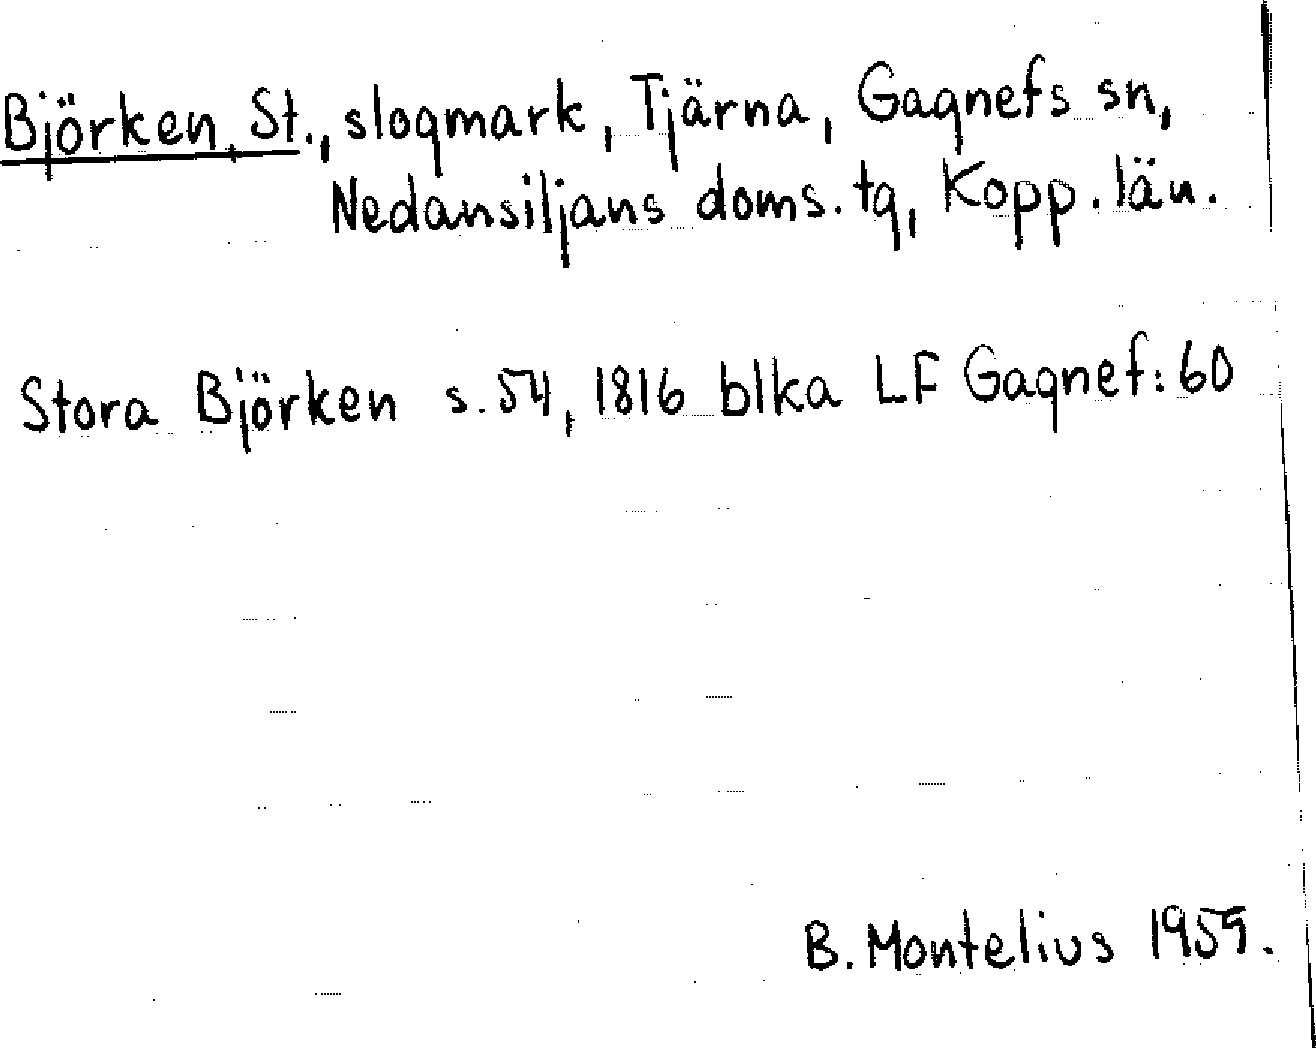 Björken, St., slogmark, Tjärna, Gagnefs sn,
Nedansiljans doms. tg, Kopp. län.
Stora Björken s. 54, 1816 blka LF Gagnef: 60
B. Montelius 1959.